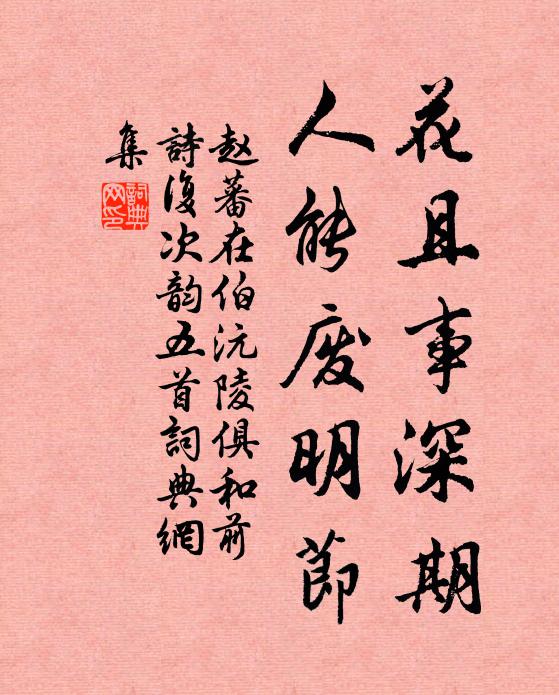 花且事深期
人能废明節
赵蕃在伯沅陵俱和前
詩復次韵五首詞典網
集
詞典
网印